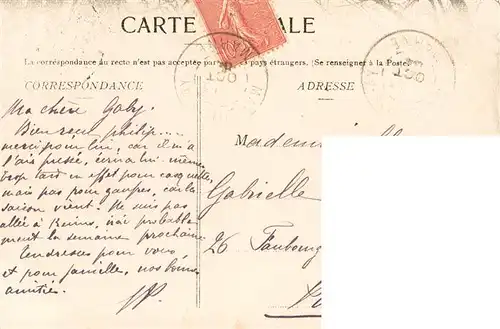 CARTE ALE
La correspondance du recto n'est pas acceptée par pays étrangers. (Se renseigner à la Poste)
CORRESPONDANCE
ADRESSE
Ma chère Gaby.
Bien reçu
merci pour lui, car il m'a
écrira lui même
trop tard en effet pour casquette,
mais pas pour car la
saison vient. Ne suis pas
allée à Reims, irai probable
ment la semaine prochaine
tendresses pour vous
et pour famille, nos bonnes
amitiés.
Mademoi
Gabrielle
26 Faubourg